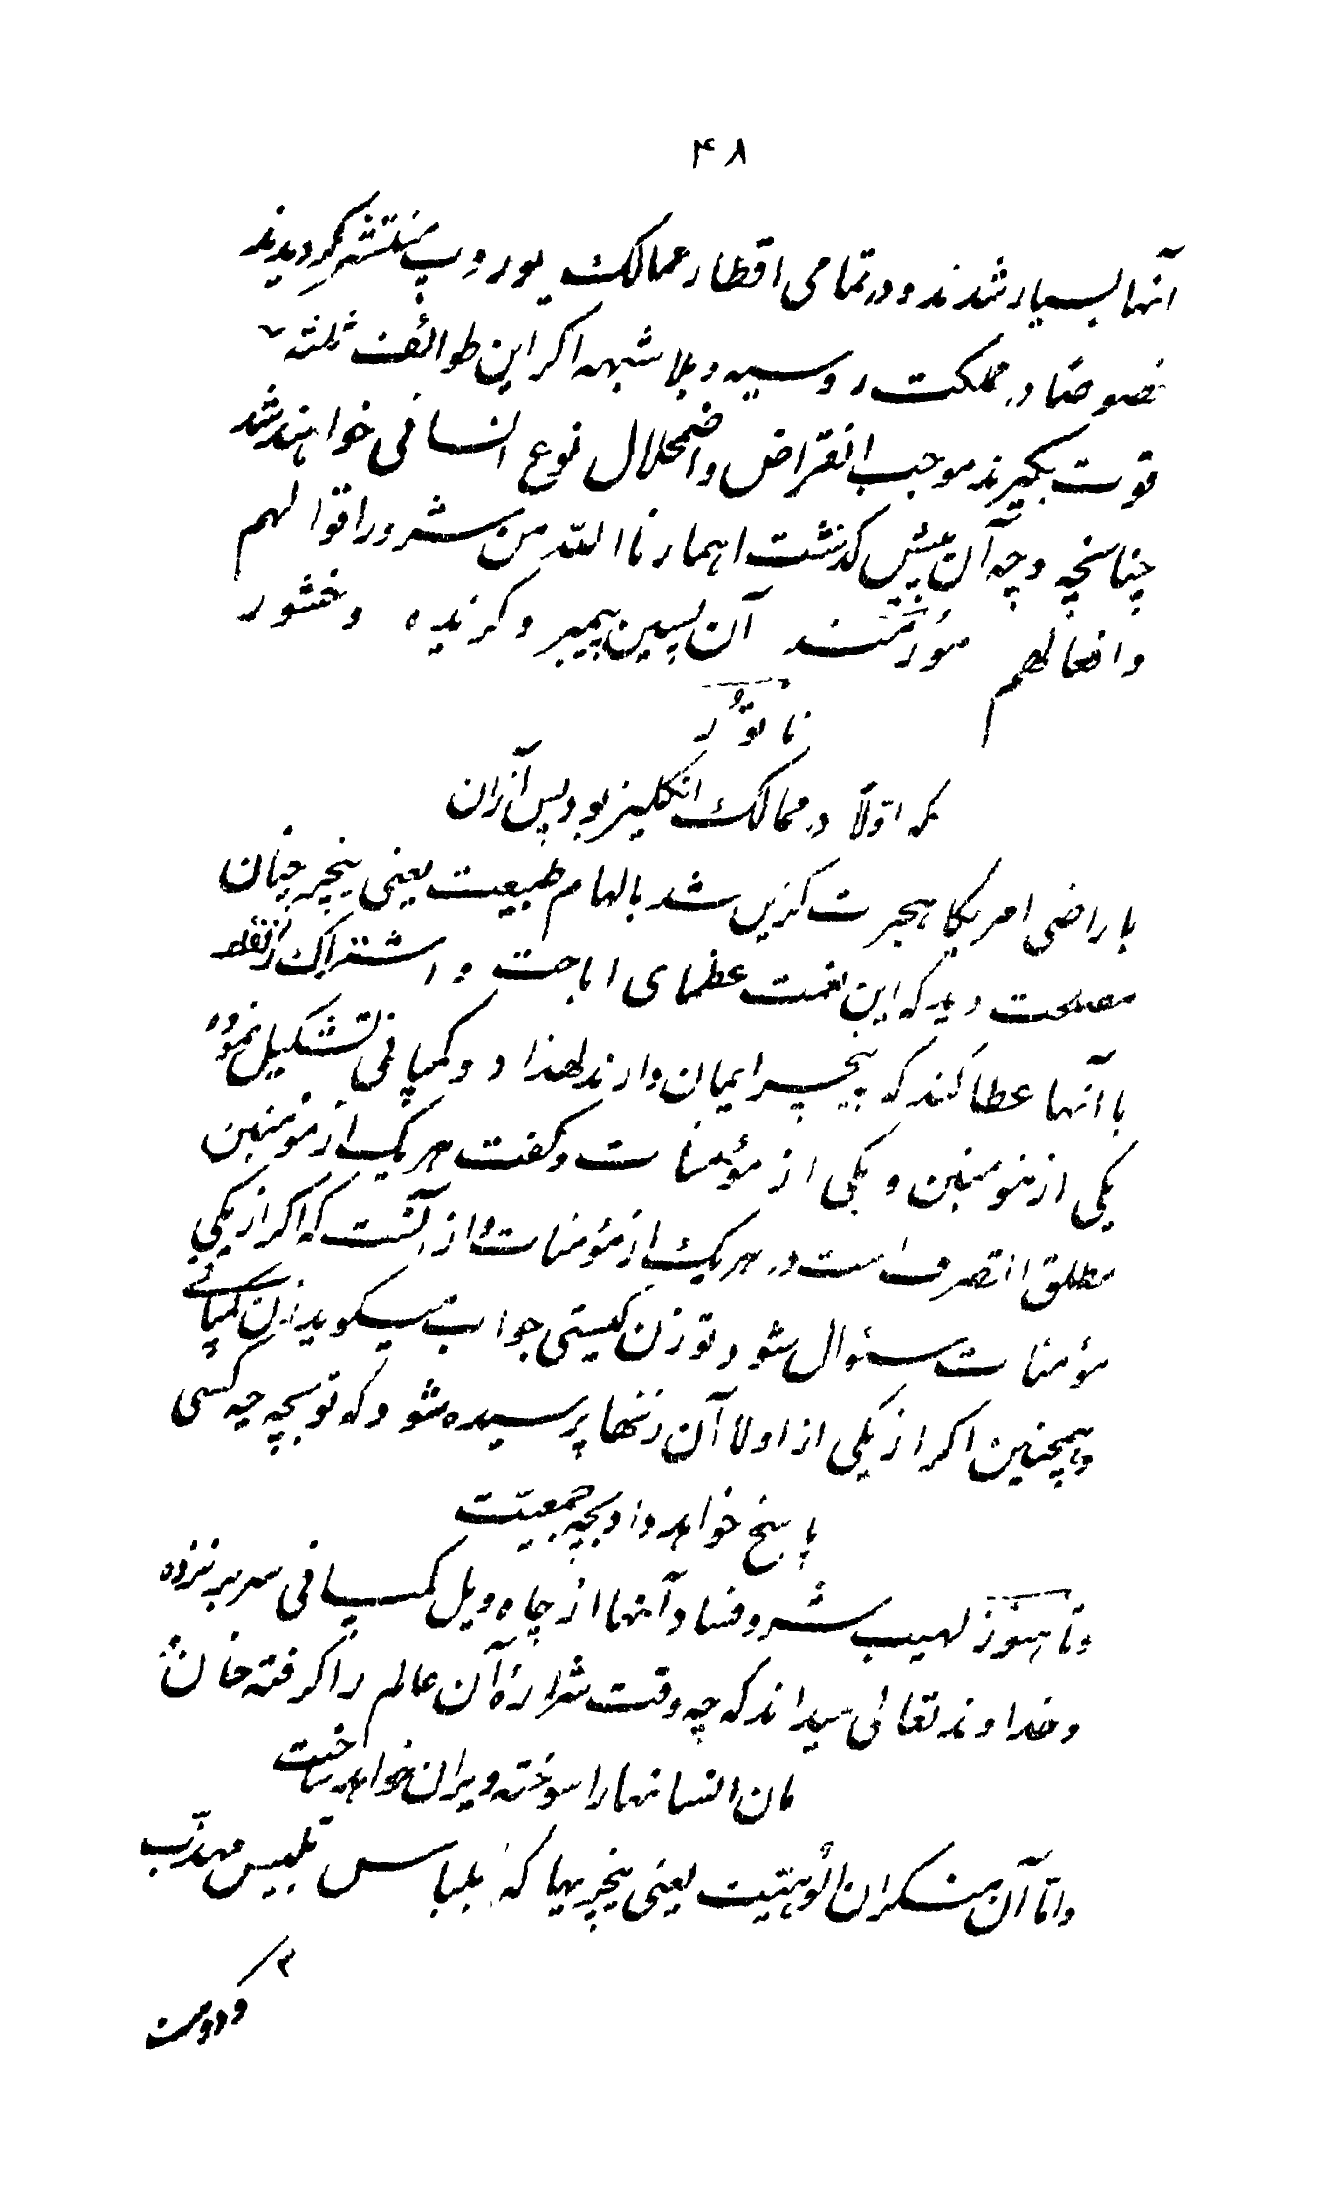 ۴۸
آنها بسیار شدند و در تمامی اقطار ممالک یوروپ منتشر کردیدند
خصوصًا در مملکت روسیه و بلا شبهه اکر این طوائف ثلثه
قوت بکیرند موجب انقراض و اضمحلال نوع انسانی خواهند شد
چنانچه وجه آن پیش کذشت اهمارنا الله من شرور اقوالهم
وافعالهم مورمُنند آن پسین پیمبر و کزیده وخشور
ناتوُر
که اولاً در ممالک انکلیز بود پس از آن
باراضی امریکا هجرت کزین شد بالهام طبیعت یعنی نیچر چنان
مصلحت دید که این نعمت عظمای اباحت و اشتراک را فقط
باآنها عطا کند که بنیچر ایمان دارند لهذا دو کمپانی تشکیل نموده
یکی از مؤمنین و یکی از مؤمنات و کفت هر یک از مؤمنین
مطلق التصرف است در هر یک از مؤمنات و از آنست که اکر از یکی
مؤمنات سئوال شود تو زن کیستی جواب میکوید زن کمپانی
وهمچنین اکر از یکی از اولاد آن زنها پرسیده شود که تو بچه چه کسی
پاسخ خواهد داد بچه جمعیت
وتا هنوز لهیب شر و فساد آنها از چاه ویل کمپانی سر بر نزده
وخداوند تعالی میداند که چه وقت شرارهٔ آن عالم را کرفته خان
مان انسانها را سوخته ویران خواهد ساخت
واما آن منکران الوُهیّت یعنی نیچریها که بلباس تلبیس مهذّب
و دوست